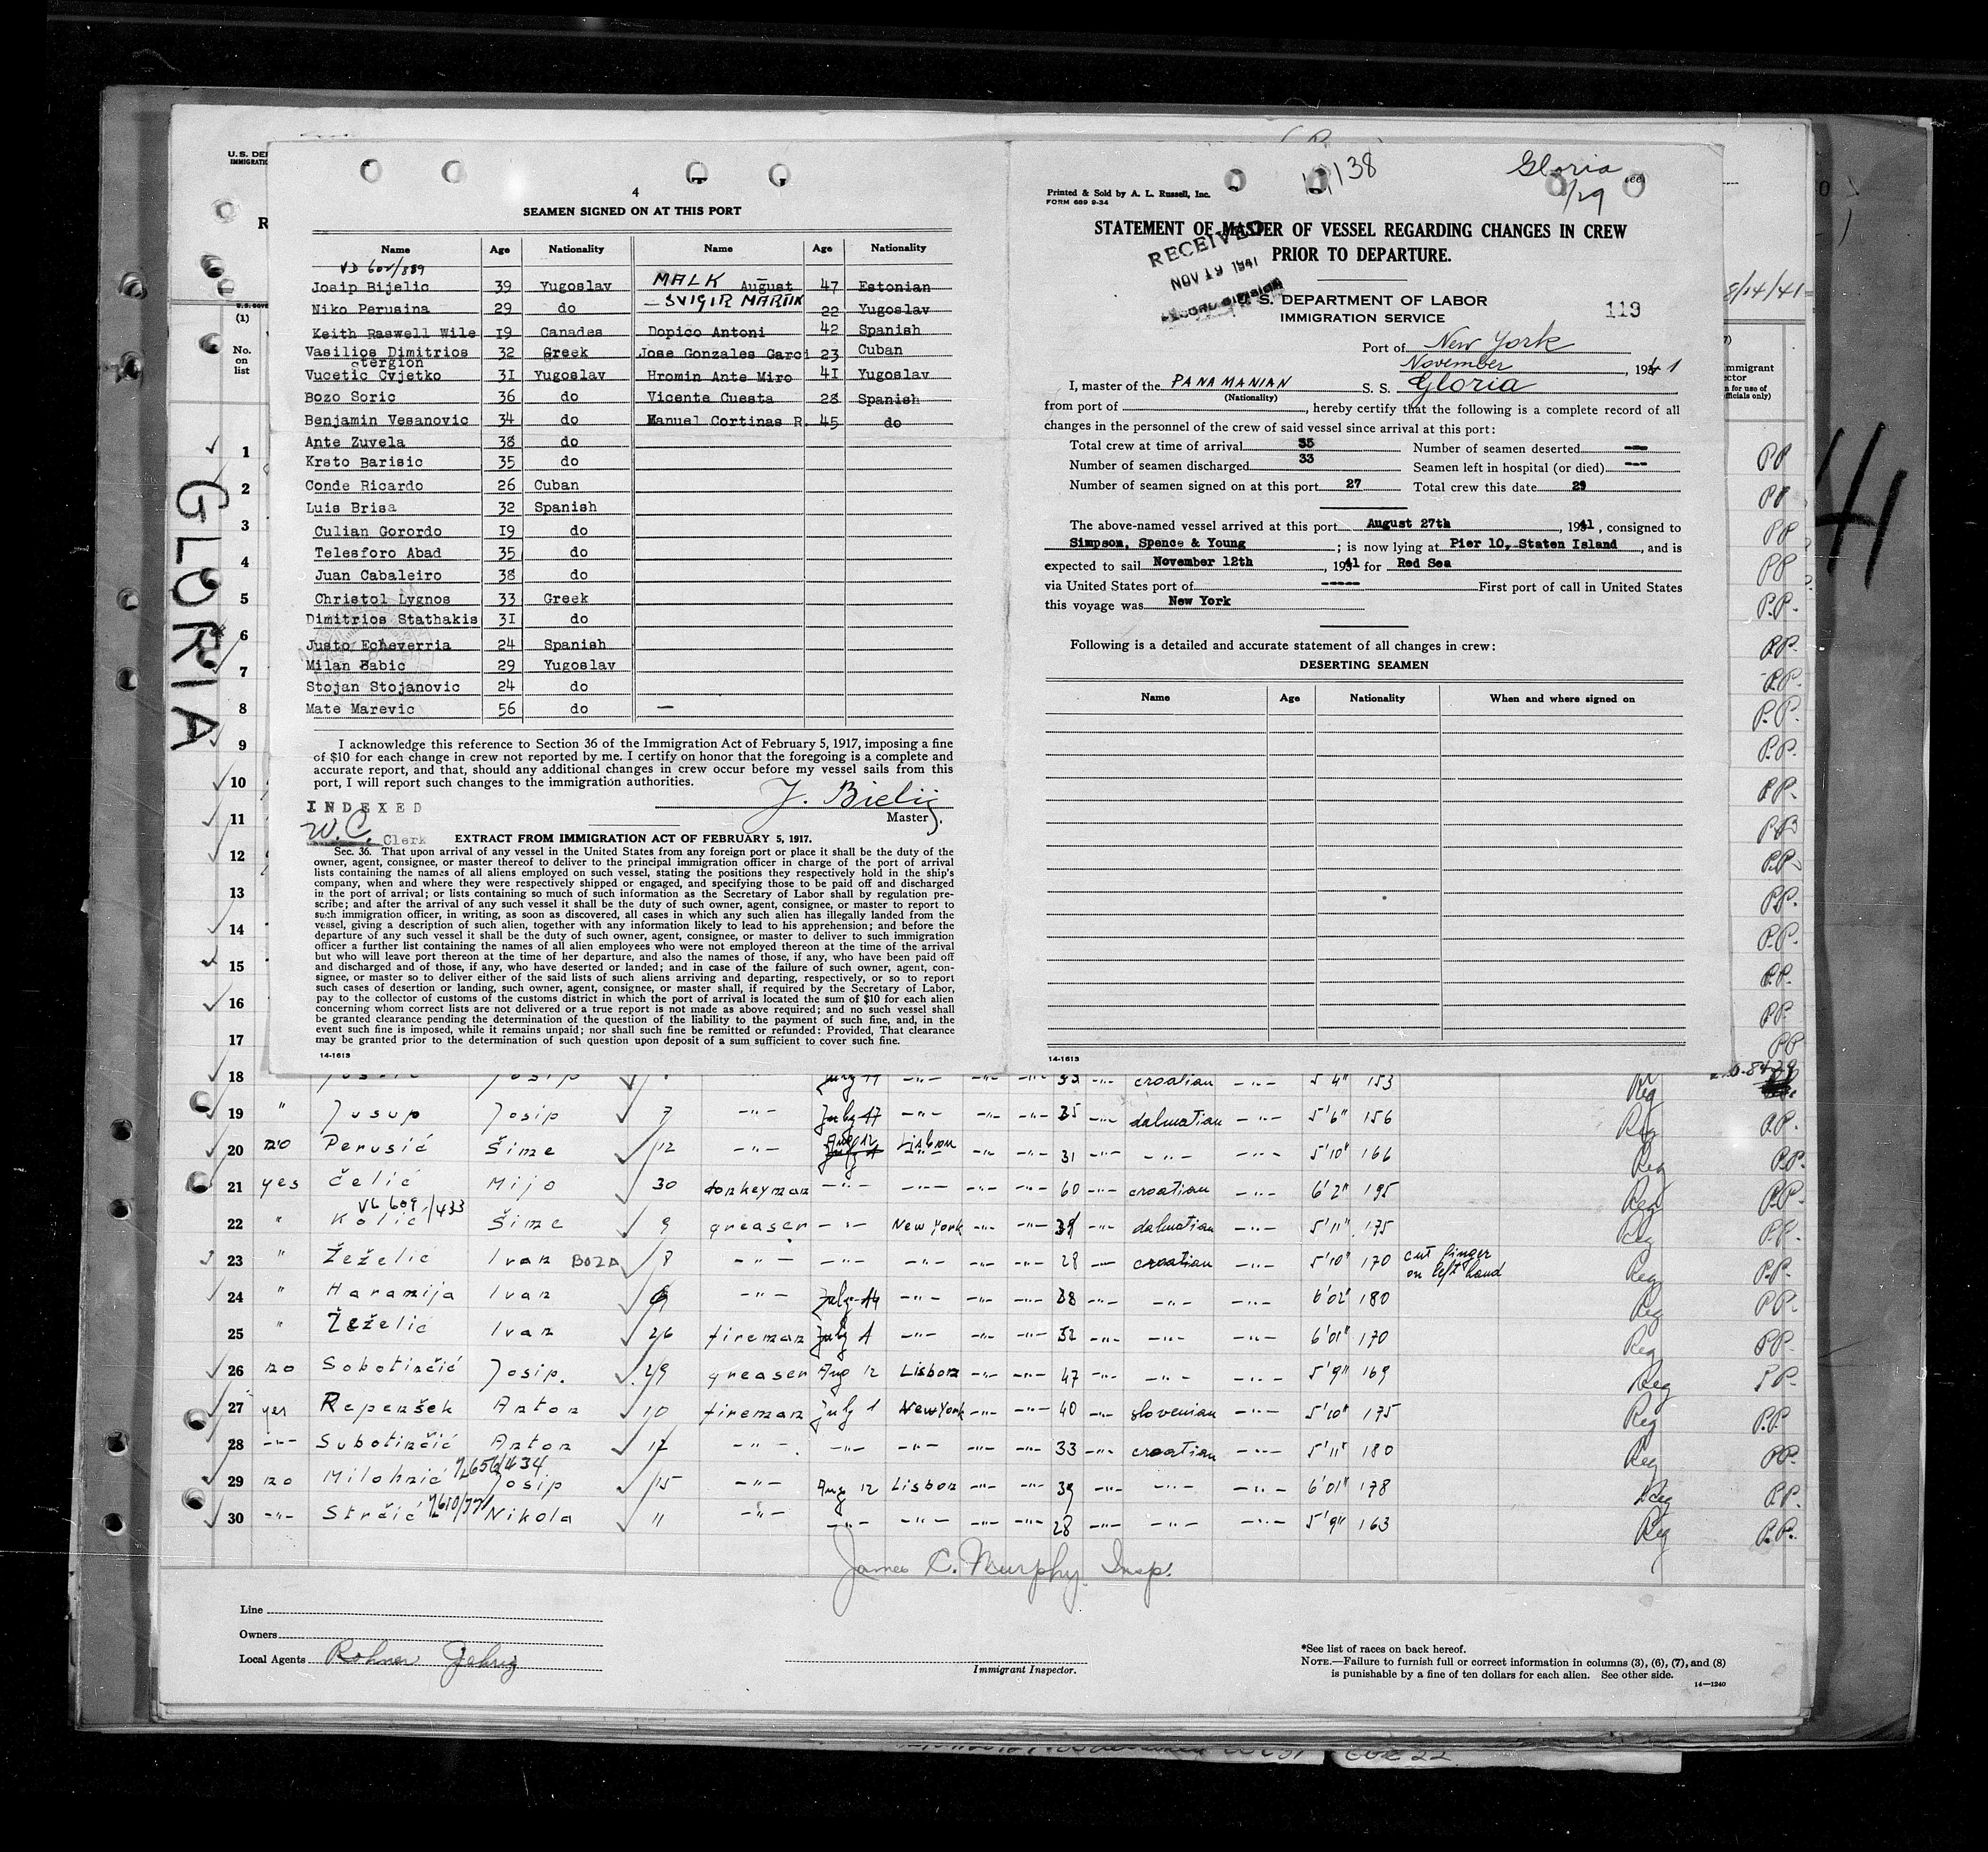 4
SEAMEN SIGNED ON AT THIS PORT
Name Age Nationality Name Age Nationality
Josip Bijelic 39 Yugoslav MALK August 47 Estonian
Niko Perusina 29 do SVIGIR MARTIN 22 Yugoslav
Keith Raswell Wile 19 Canades Dopico Antoni 42 Spanish
Vasilios Dimitrios stergion 32 Greek Jose Gonzales Garci 23 Cuban
Vucetic Cvjetko 31 Yugoslav Hromin Ante Miro 41 Yugoslav
Bozo Soric 36 do Vicente Cuesta 28 Spanish
Benjamin Vesanovic 34 do Manuel Cortinas R. 45 do
Ante Zuvela 38 do
Krsto Barisic 35 do
Conde Ricardo 26 Cuban
Luis Brisa 32 Spanish
Culian Gorordo 19 do
Telesforo Abad 35 do
Juan Cabaleiro 38 do
Christol Lygnos 33 Greek
Dimitrios Stathakis 31 do
Justo Echeverria 24 Spanish
Milan Babic 29 Yugoslav
Stojan Stojanovic 24 do
Mate Marevic 56 do —
I acknowledge this reference to Section 36 of the Immigration Act of February 5, 1917, imposing a fine
of $10 for each change in crew not reported by me. I certify on honor that the foregoing is a complete and
accurate report, and that, should any additional changes in crew occur before my vessel sails from this
port, I will report such changes to the immigration authorities.
INDEXED
W.C. Clerk
Master.
EXTRACT FROM IMMIGRATION ACT OF FEBRUARY 5, 1917.
Sec. 36. That upon arrival of any vessel in the United States from any foreign port or place it shall be the duty of the
owner, agent, consignee, or master thereof to deliver to the principal immigration officer in charge of the port of arrival
lists containing the names of all aliens employed on such vessel, stating the positions they respectively hold in the ship's
company, when and where they were respectively shipped or engaged, and specifying those to be paid off and discharged
in the port of arrival; or lists containing so much of such information as the Secretary of Labor shall by regulation pre-
scribe; and after the arrival of any such vessel it shall be the duty of such owner, agent, consignee, or master to report to
such immigration officer, in writing, as soon as discovered, all cases in which any such alien has illegally landed from the
vessel, giving a description of such alien, together with any information likely to lead to his apprehension; and before the
departure of any such vessel it shall be the duty of such owner, agent, consignee, or master to deliver to such immigration
officer a further list containing the names of all alien employees who were not employed thereon at the time of the arrival
but who will leave port thereon at the time of her departure, and also the names of those, if any, who have been paid off
and discharged and of those, if any, who have deserted or landed; and in case of the failure of such owner, agent, con-
signee, or master so to deliver either of the said lists of such aliens arriving and departing, respectively, or so to report
such cases of desertion or landing, such owner, agent, consignee, or master shall, if required by the Secretary of Labor,
pay to the collector of customs of the customs district in which the port of arrival is located the sum of $10 for each alien
concerning whom correct lists are not delivered or a true report is not made as above required; and no such vessel shall
be granted clearance pending the determination of the question of the liability to the payment of such fine, and, in the
event such fine is imposed, while it remains unpaid; nor shall such fine be remitted or refunded: Provided, That clearance
may be granted prior to the determination of such question upon deposit of a sum sufficient to cover such fine.
14-1613
Printed & Sold by A. L. Russell, Inc.
FORM 689 9-34
Gloria
1/29
STATEMENT OF MASTER OF VESSEL REGARDING CHANGES IN CREW
PRIOR TO DEPARTURE.
RECEIVED
NOV 19 1941
U. S. DEPARTMENT OF LABOR
IMMIGRATION SERVICE
119
Port of New York
November, 1941
I, master of the PANAMANIAN S. S. Gloria
(Nationality)
from port of , hereby certify that the following is a complete record of all
changes in the personnel of the crew of said vessel since arrival at this port:
Total crew at time of arrival 35 Number of seamen deserted ---
Number of seamen discharged 33 Seamen left in hospital (or died) ---
Number of seamen signed on at this port 27 Total crew this date 29
The above-named vessel arrived at this port August 27th, 1941, consigned to
Simpson, Spence & Young ; is now lying at Pier 10, Staten Island, and is
expected to sail November 12th, 1941 for Red Sea
via United States port of ----- First port of call in United States
this voyage was New York
Following is a detailed and accurate statement of all changes in crew:
DESERTING SEAMEN
Name Age Nationality When and where signed on
14-1613
GLORIA
(1)
No.
on
list
1
2
3
4
5
6
7
8
9
10
11
12
13
14
15
16
17
18 Josip 153 croatian 5'4"
19 " Jusup Josip 7 July 17 35 dalmatian 5'6" 156 Reg P.P.
20 no Perusić Šime 12 Aug 12 Lisbon 31 5'10" 166 Reg P.P.
21 yes Čelić Mijo 30 donkeyman 60 croatian 6'2" 195 Reg P.P.
22 " Kolić Šime 9 greaser New York 39 dalmatian 5'11" 175 Reg P.P.
23 " Žeželić Ivan BOZO 8 28 croatian 5'10" 170 cut finger on left hand Reg P.P.
24 " Haramija Ivan 6 July 14 38 6'02" 180 Reg P.P.
25 " Žeželić Ivan 26 fireman July 1 32 6'01" 170 Reg P.P.
26 no Sobotinčić Josip. 29 greaser Aug 12 Lisbon 47 5'9" 169 Reg P.P.
27 yes Repenšek Anton 10 fireman July 1 New York 40 slovenian 5'10" 175 Reg P.P.
28 Subotinčić Anton 17 33 croatian 5'11" 180 Reg P.P.
29 no Milohnić Josip 15 Aug 12 Lisbon 39 6'01" 178 Reg P.P.
30 Strčić Nikola 11 28 5'9" 163 Reg P.P.
James C. Murphy. Insp.
Line
Owners
Local Agents Rohner Gehrig
Immigrant Inspector.
*See list of races on back hereof.
NOTE.—Failure to furnish full or correct information in columns (3), (6), (7), and (8)
is punishable by a fine of ten dollars for each alien. See other side.
14—1240